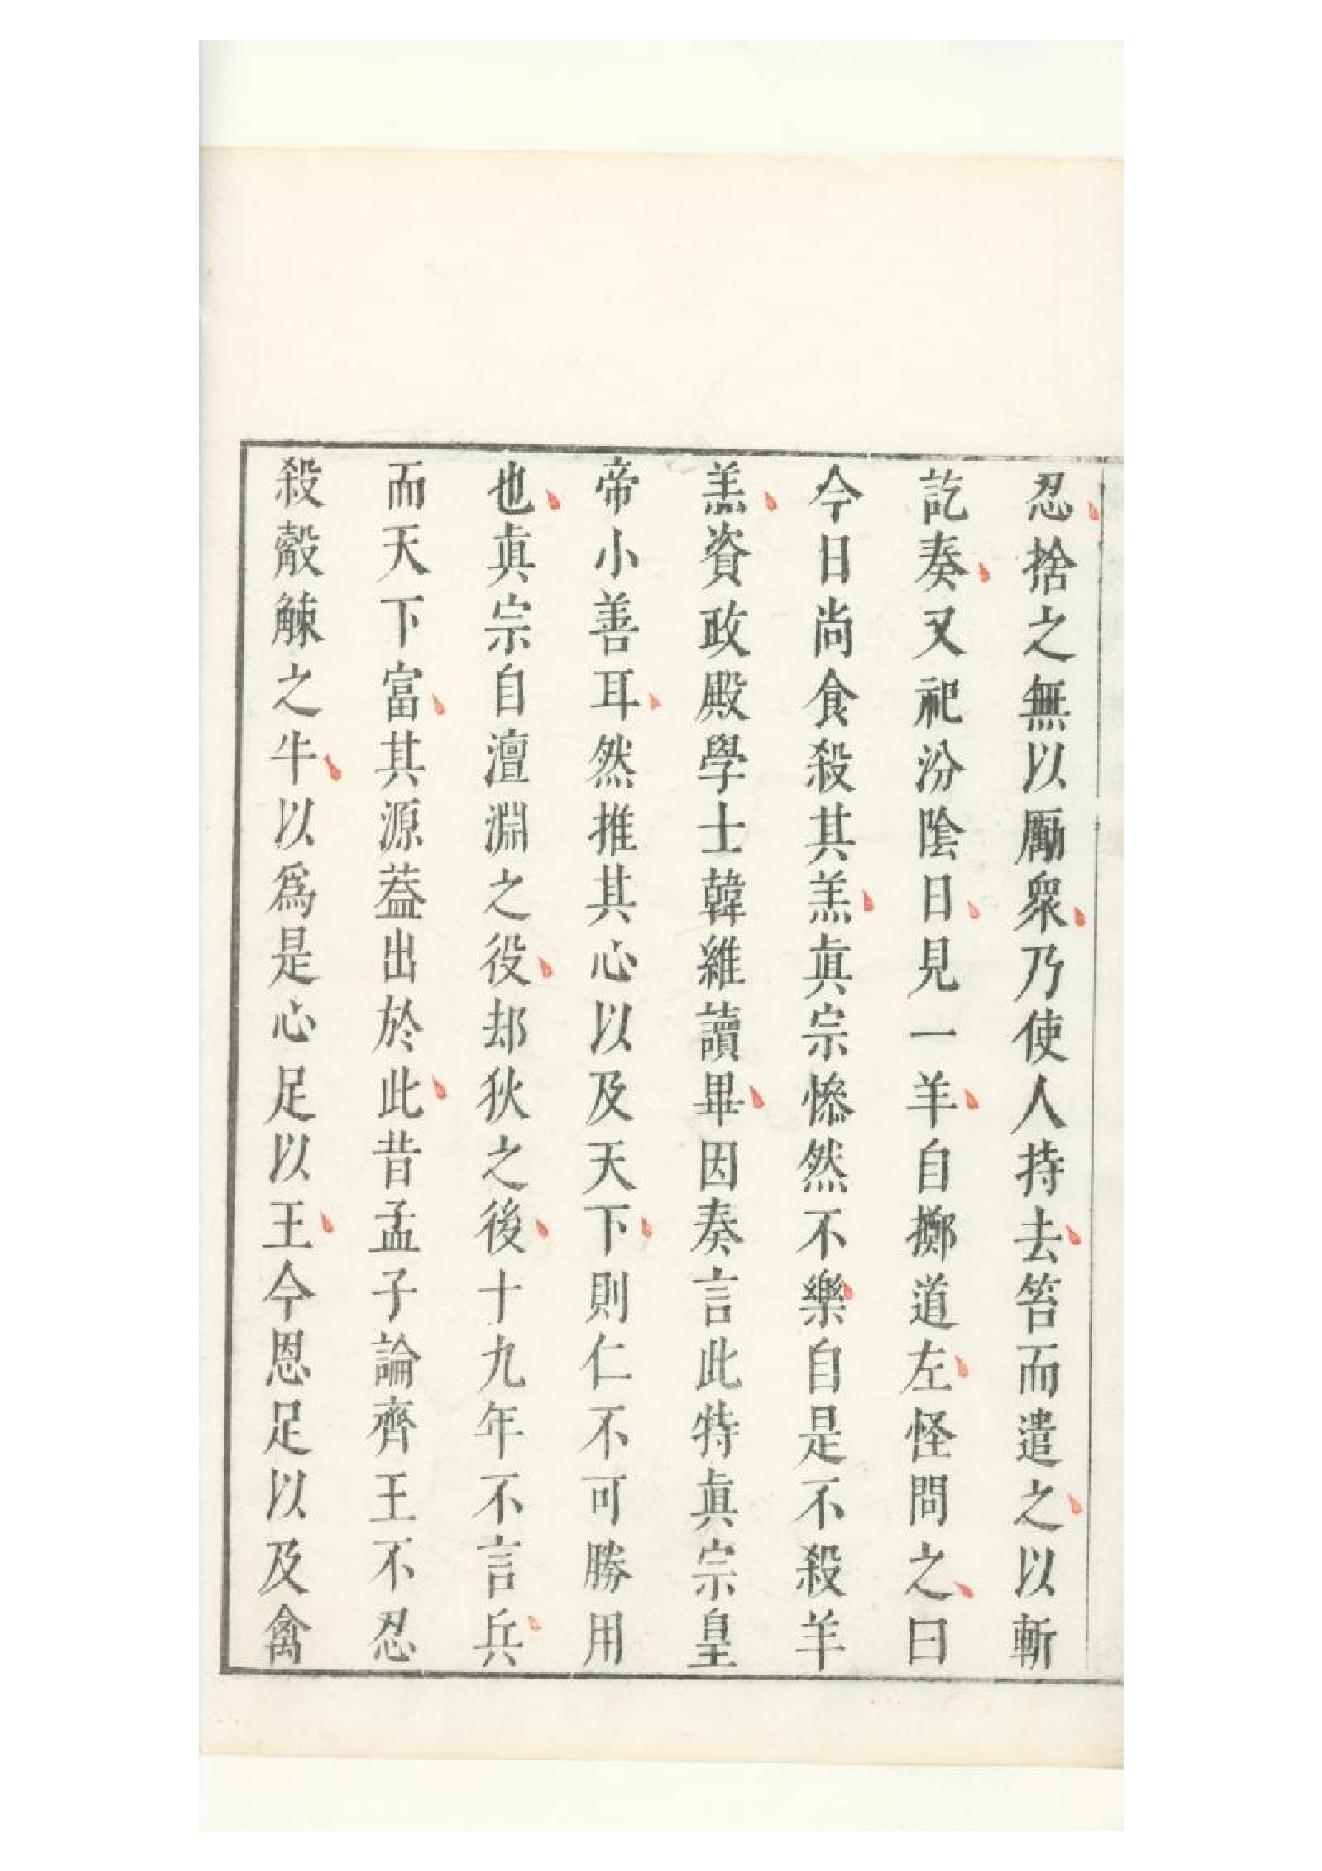 忍捨之無以勵衆乃使人持去笞而遣之以斬
訖奏又祀汾陰日見一羊自擲道左怪問之曰
今日尚食殺其羔眞宗慘然不樂自是不殺羊
羔資政殿學士韓維讀畢因奏言此特眞宗皇
帝小善耳然推其心以及天下則仁不可勝用
也眞宗自澶淵之役却狄之後十九年不言兵
而天下富其源葢出於此昔孟子論齊王不忍
殺觳觫之牛以爲是心足以王今恩足以及禽